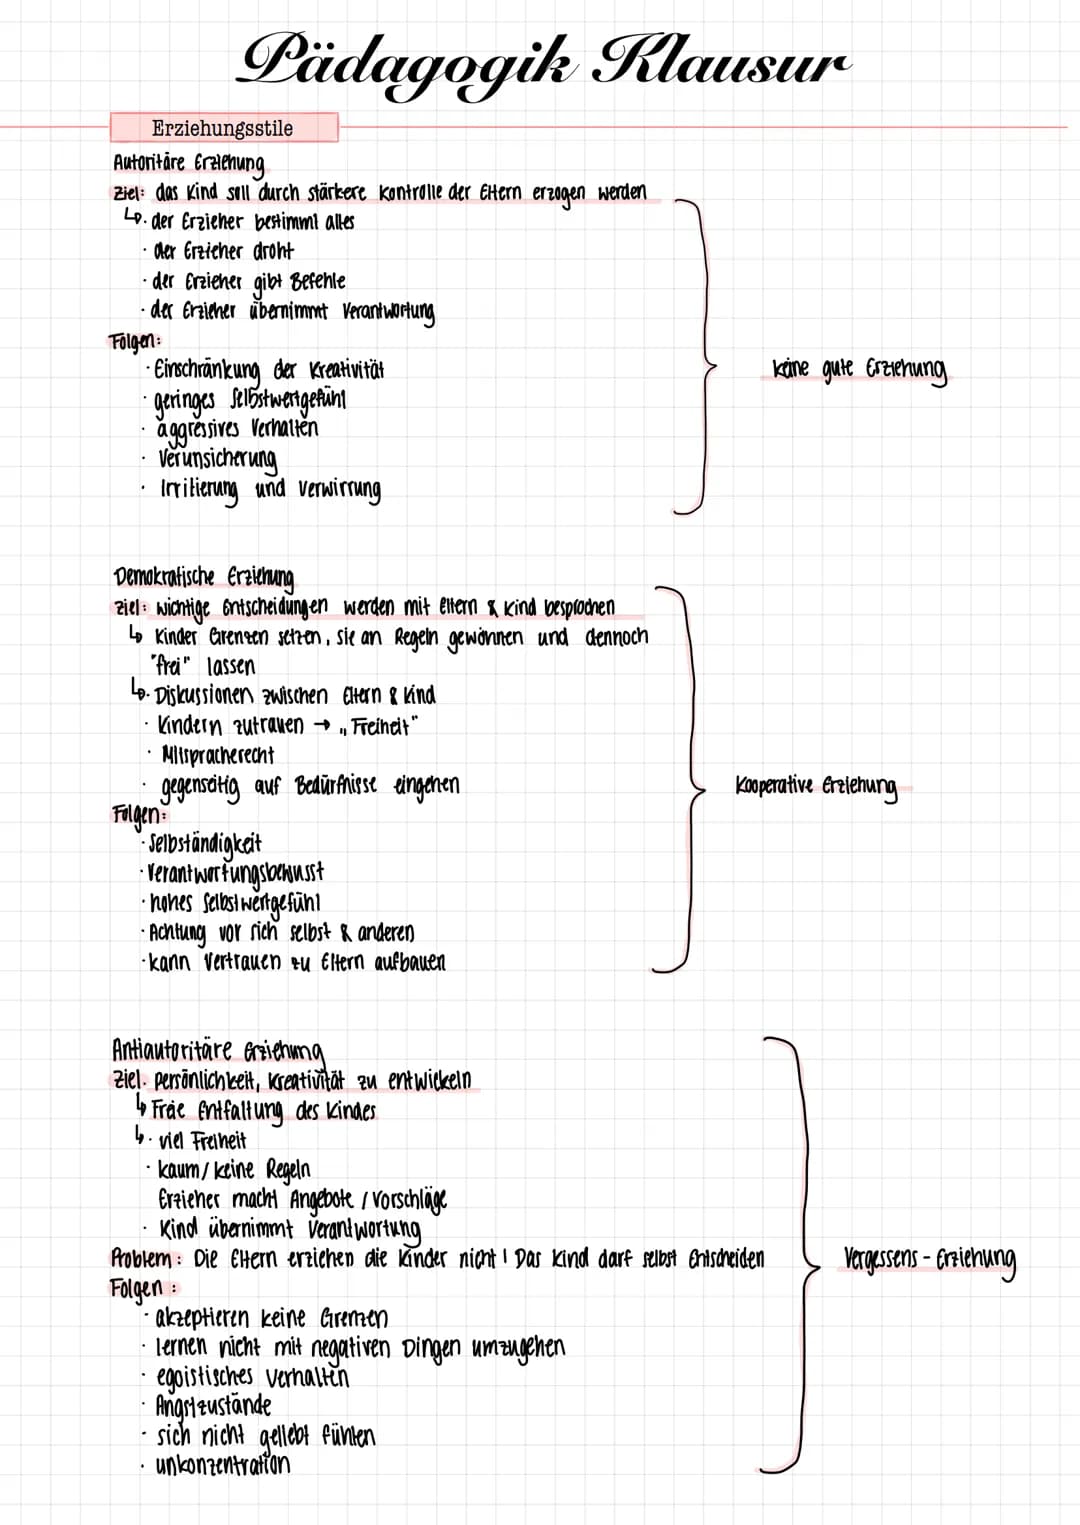 Pädagogik Klausur
Erziehungsstile
Autoritäre Erziehung
Ziel: das Kind soll durch stärkere Kontrolle der Eltern erzogen werden
↳ · der Erzieher bestimmt alles
· der Erzieher droht
· der Erzieher gibt Befehle
· der Erzieher übernimmt Verantwortung
Folgen:
· Einschränkung der Kreativität
keine gute Erziehung
· geringes Selbstwertgefühl
· aggressives Verhalten
· Verunsicherung
· Irritierung und Verwirrung
Demokratische Erziehung
Ziel: wichtige Entscheidungen werden mit Eltern & Kind besprochen
↳ Kinder Grenzen setzen, sie an Regeln gewönnen und dennoch
"frei" lassen
↳ · Diskussionen zwischen Eltern & Kind
· Kindern zutrauen → „Freiheit"
· Mitspracherecht
· gegenseitig auf Bedürfnisse eingehen
Kooperative Erziehung
Folgen:
· Selbständigkeit
· Verantwortungsbewusst
· hohes Selbstwertgefühl
· Achtung vor sich selbst & anderen
· kann Vertrauen zu Eltern aufbauen
Antiautoritäre Erziehung
Ziel: Persönlichkeit, Kreativität zu entwickeln
↳ Freie Entfaltung des Kindes
↳ · viel Freiheit
· kaum/keine Regeln
Erzieher macht Angebote / Vorschläge
· Kind übernimmt Verantwortung
Problem: Die Eltern erziehen die Kinder nicht! Das Kind darf selbst Entscheiden
Vergessens-Erziehung
Folgen:
· akzeptieren keine Grenzen
· lernen nicht mit negativen Dingen umzugehen
· egoistisches Verhalten
· Angstzustände
· sich nicht geliebt fühlen
· unkonzentration